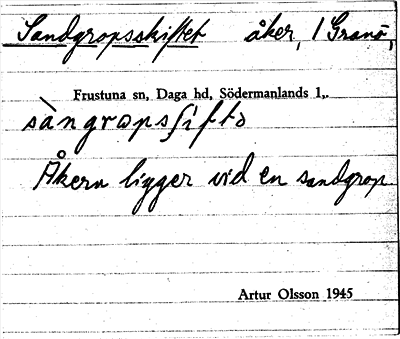 Sandgropsskiftet åker, 1 Granö,
Frustuna sn, Daga hd, Södermanlands l,.
Åkern ligger vid en sandgrop.
Artur Olsson 1945